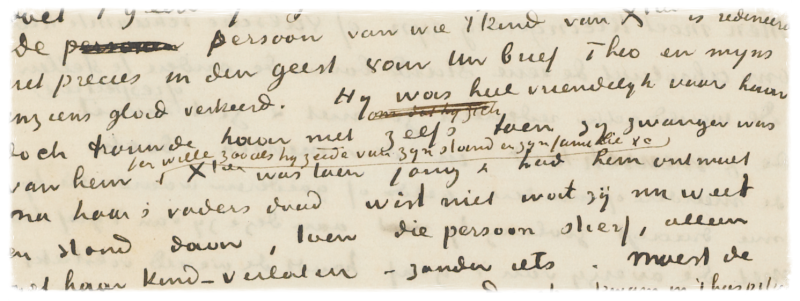 de persoon van wie 't kind van Xtien is redeneert
net precies in den geest van Uw brief Theo en myns
inziens glad verkeerd. Hy was heel vriendelyk voor haar
om dat hy zich
doch trouwde haar niet zelfs toen zy zwanger was
ter wille zooals hy zeide van zyn stand en zyn familie &c
van hem. Xtien was toen jong & had hem ontmoet
na haar's vaders dood wist niet wat zy nu weet
en stond daar, toen die persoon stierf, alleen
met haar kind – verlaten – zonder iets. Moest de